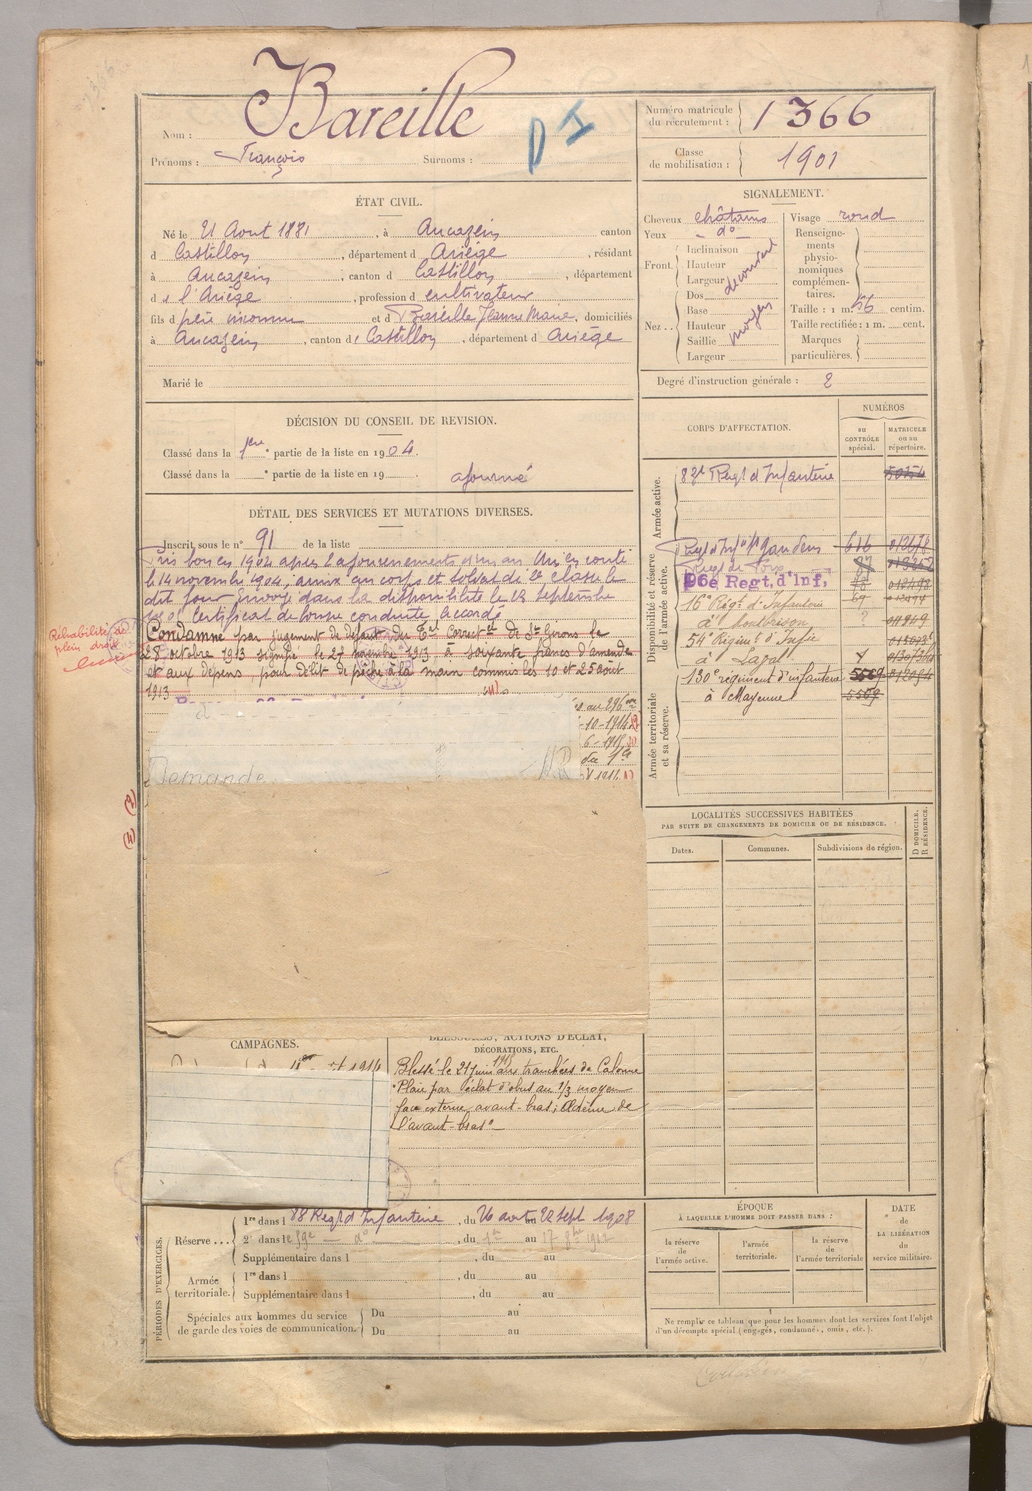 Nom : Bareille
Prénoms : François Surnoms :
D I
Numéro matricule du recrutement : 1366
Classe de mobilisation : 1901
ÉTAT CIVIL.
Né le 21 Aout 1881, à Aucazein canton
d Castillon, département d Ariège, résidant
à Aucazein, canton d Castillon, département
d e l'Ariège, profession d cultivateur
fils d père inconnu et d Bareille Jeanne Marie, domiciliés
à Aucazein, canton d e Castillon, département d Ariège
Marié le
SIGNALEMENT.
Cheveux châtains
Yeux d°
Front. Inclinaison
Hauteur
Largeur
découvert
Nez . . Dos
Base
Hauteur
Saillie
Largeur
moyen
Visage rond
Renseignements physionomiques complémentaires.
Taille : 1 m. 56 centim.
Taille rectifiée : 1 m. cent.
Marques particulières.
Degré d'instruction générale : 2
DÉCISION DU CONSEIL DE REVISION.
Classé dans la 1ère partie de la liste en 1904.
Classé dans la e partie de la liste en 19
ajourné
DÉTAIL DES SERVICES ET MUTATIONS DIVERSES.
Inscrit sous le n° 91 de la liste
Pris bon en 1904 après l'ajournement d'un an. Mis en route
le 14 novembre 1904, arrivé au corps et soldat de 2e classe le
dit jour. Envoyé dans la disponibilité le 18 septembre
Certificat de bonne conduite accordé
Réhabilité de plein droit
Condamné par jugement de défaut du Tal Correctel de St Girons le
28 octobre 1913 signifié le 27 novembre 1913 à soixante francs d'amende
et aux dépens, pour délit de pêche à la main commis les 10 et 25 août
1913
au 296
-10-1914
6-1915
du 7e
1916
Demande
(3)
(4)
CORPS D'AFFECTATION.
NUMÉROS
au CONTRÔLE spécial.
MATRICULE ou au répertoire.
Armée active.
83e Regt d'Infanterie
Disponibilité et réserve de l'armée active.
Regt d'Infie St Gaudens 616
Regt de Foix
96e Regt, d'Inf,
16e Régt d'Infanterie
à Montbrison
54e Régimt d'Infie
à Laval
130e régiment d'infanterie 5569
à Mayenne 5569
Armée territoriale et sa réserve.
LOCALITÉS SUCCESSIVES HABITÉES
PAR SUITE DE CHANGEMENTS DE DOMICILE OU DE RÉSIDENCE.
Dates.
Communes.
Subdivisions de région.
D DOMICILE, R RÉSIDENCE.
CAMPAGNES.
1914
BLESSURES, ACTIONS D'ÉCLAT, DÉCORATIONS, ETC.
Blessé le 21 juin 1915 aux tranchées de Calonne
"Plaie par éclat d'obus au 1/3 moyen
face externe avant-bras; Oedème de
l'avant-bras"
PÉRIODES D'EXERCICES.
Réserve . . . 1re dans l 88 Regt d'Infanterie, du 26 aout au 22 Sept 1908
2e dans l e 59e — d°, du 1er au 17 8bre 1912
Supplémentaire dans l , du au
Armée territoriale. 1re dans l , du au
Supplémentaire dans l , du au
Spéciales aux hommes du service de garde des voies de communication. Du au
Du au
ÉPOQUE
À LAQUELLE L'HOMME DOIT PASSER DANS :
la réserve de l'armée active.
l'armée territoriale.
la réserve de l'armée territoriale
DATE de LA LIBÉRATION du service militaire.
Ne remplir ce tableau que pour les hommes dont les services font l'objet
d'un décompte spécial (engagés, condamnés, omis, etc.).